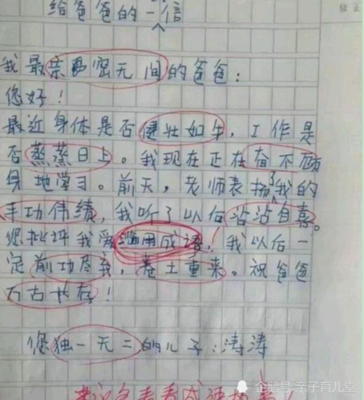 给爸爸的一信
我最亲密无间的爸爸：
您好！
最近身体是否健壮如牛，工作是
否蒸蒸日上。我现在正在奋不顾
身地学习。前天，老师表扬了我的
丰功伟绩，我听了以后沾沾自喜。
您批评我爱滥用成语，我以后一
定前功尽弃，卷土重来。祝爸爸
万古长存！
您独一无二的儿子：涛涛
企鹅号 亲子育儿堂